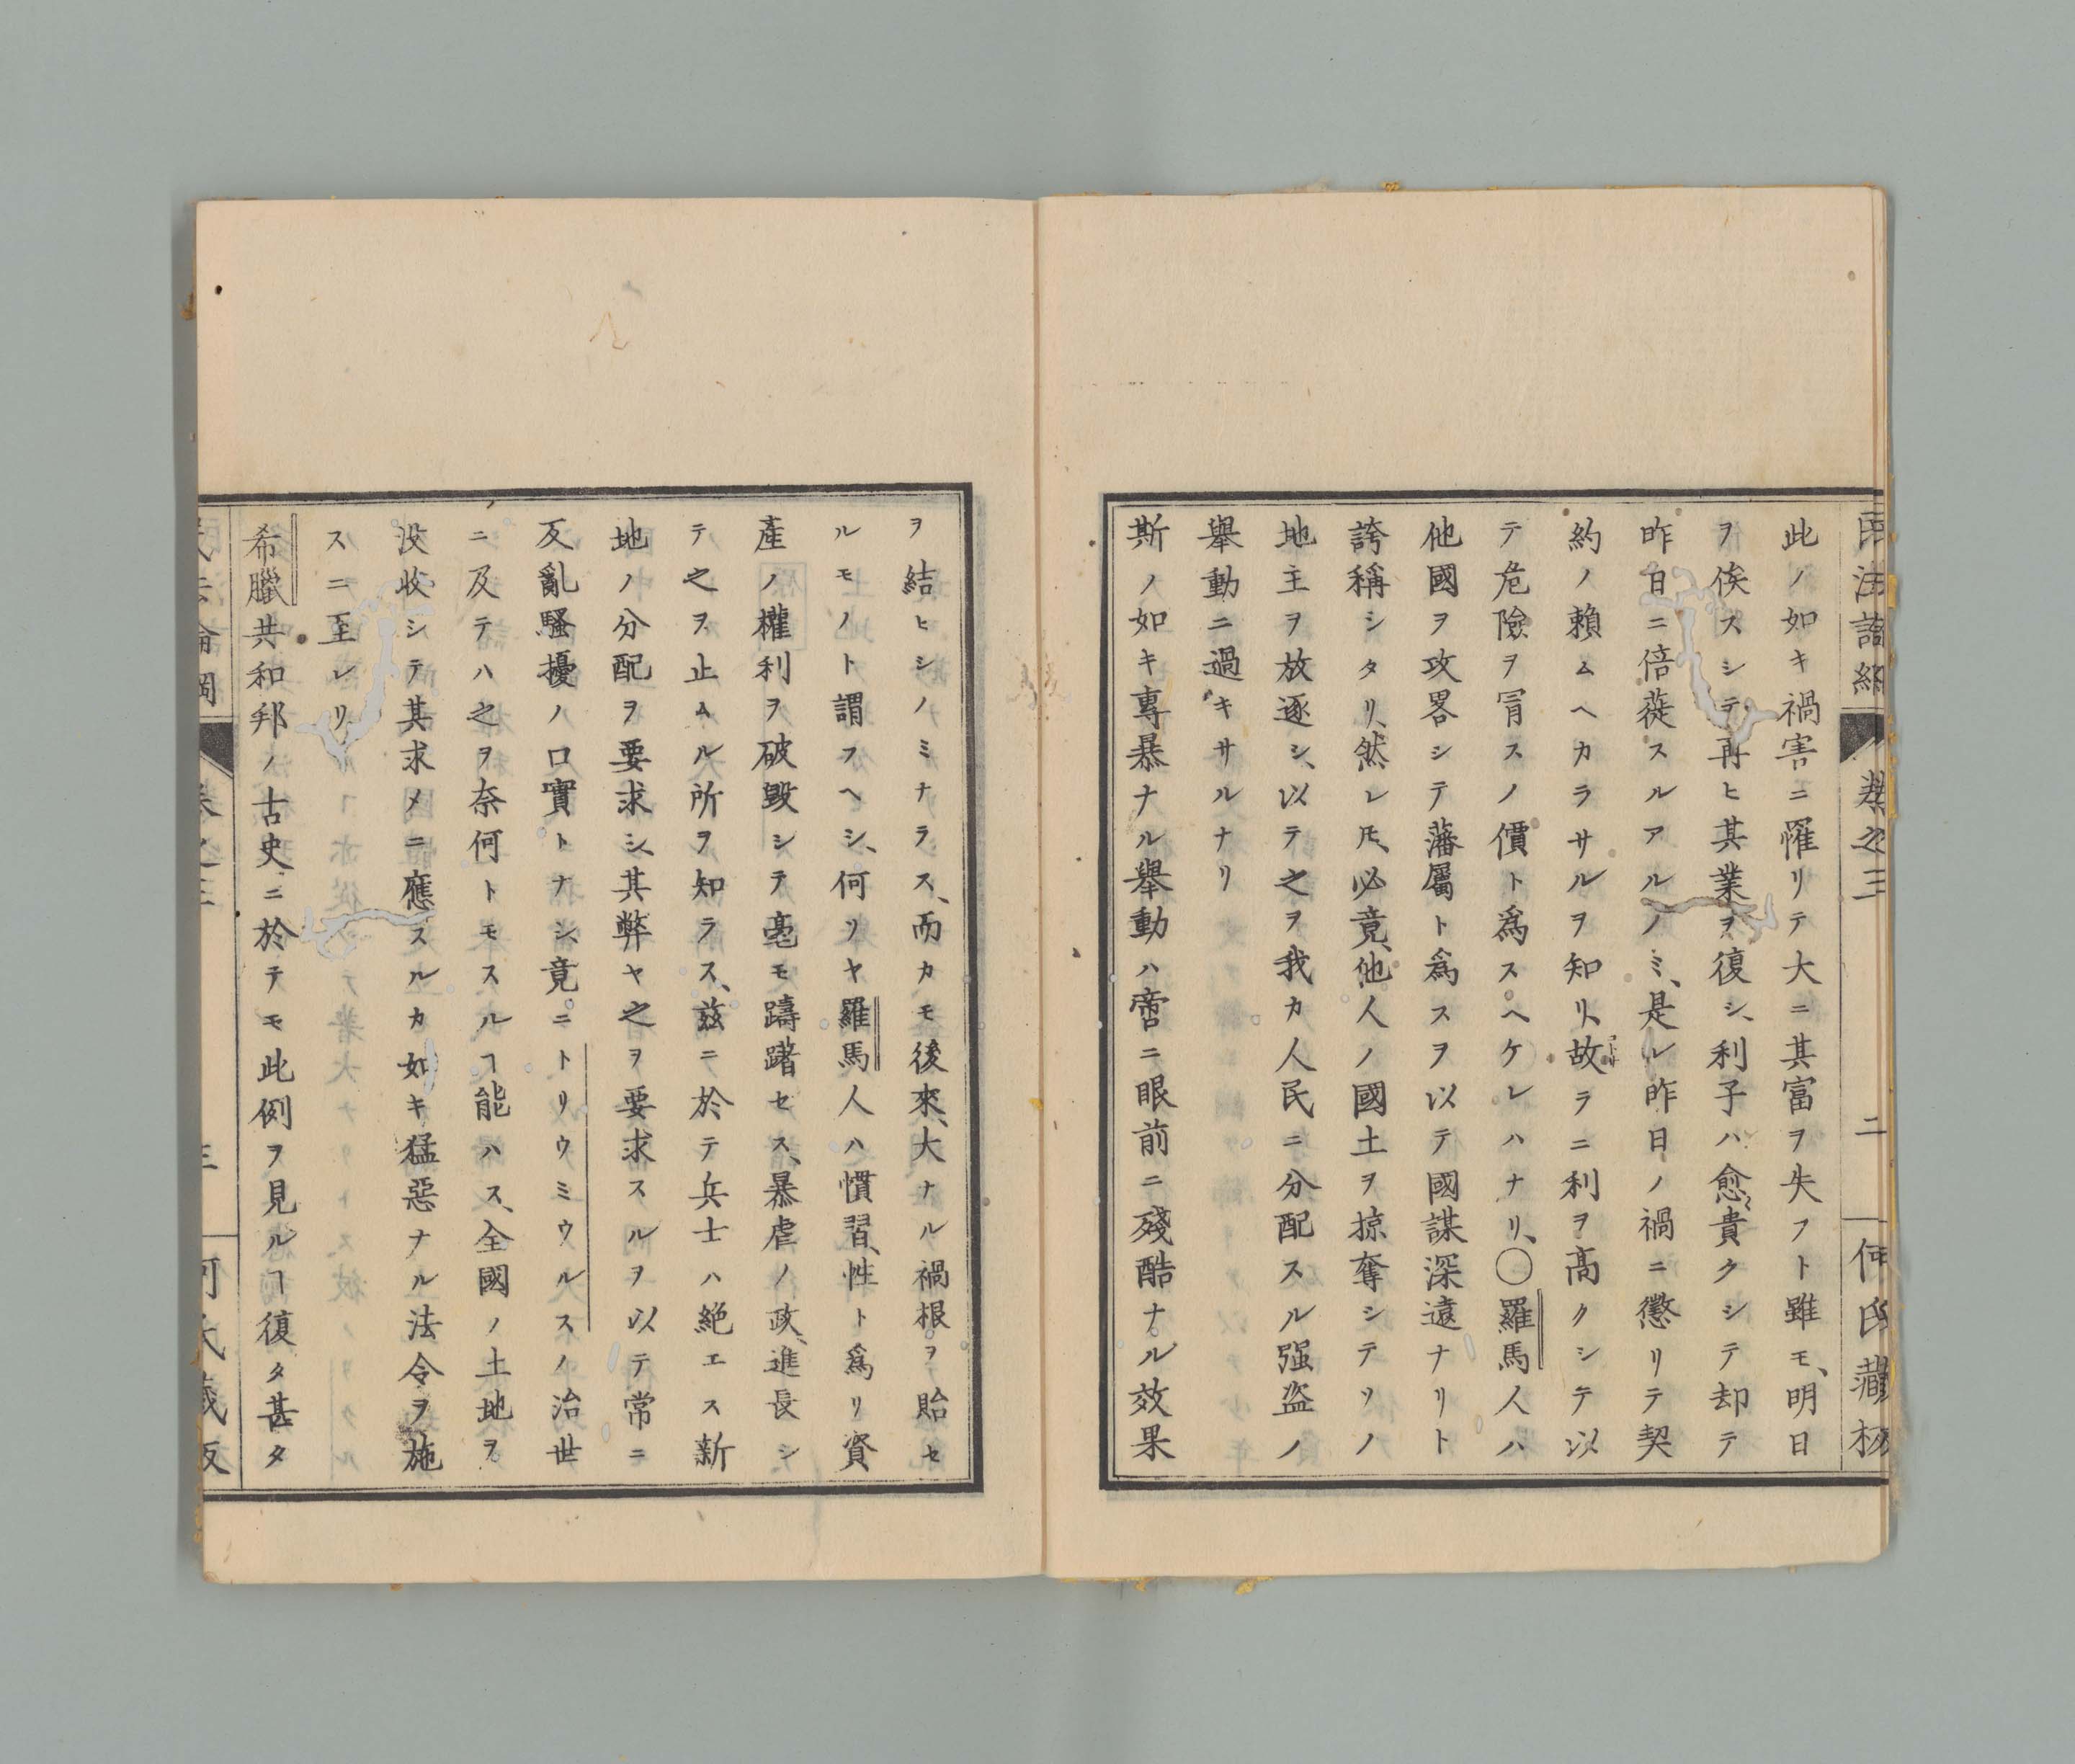 民法論綱 卷之三 二 何氏藏板
此ノ如キ禍害ニ罹リテ大ニ其富ヲ失フト雖モ、明日
ヲ俟スシテ再ヒ其業ヲ復シ、利子ハ愈貴クシテ却テ
昨日ニ倍蓰スルアルノミ、是レ昨日ノ禍ニ懲リテ契
約ノ賴ムヘカラサルヲ知リ、故ラニ利ヲ高クシテ以
テ危險ヲ冐スノ價ト爲スヘケレハナリ、〇羅馬人ハ
他國ヲ攻畧シテ藩屬ト爲スヲ以テ國謀深遠ナリト
誇稱シタリ、然レ𪜈、必竟、他人ノ國土ヲ掠奪シテソノ
地主ヲ放逐シ、以テ之ヲ我カ人民ニ分配スル强盜ノ
舉動ニ過キサルナリ
斯ノ如キ專暴ナル舉動ハ啻ニ眼前ニ殘酷ナル效果
ヲ結ヒシノミナラス、而カモ後來、大ナル禍根ヲ貽セ
ルモノト謂フヘシ、何リヤ羅馬人ハ慣習、性ト爲リ資
產ノ權利ヲ破毀シテ毫モ躊躇セス、暴虐ノ政、進長シ
テ之ヲ止ムル所ヲ知ラス、茲ニ於テ兵士ハ絶エス新
地ノ分配ヲ要求シ、其弊ヤ之ヲ要求スルヲ以テ常ニ
反亂騷擾ノ口實トナシ、竟ニトリウミウルスノ治世
ニ及テハ之ヲ奈何トモスルヿ能ハス、全國ノ土地ヲ
没收シテ其求メニ應スルカ如キ猛惡ナル法令ヲ施
スニ至レリ
希臘共和邦ノ古史ニ於テモ此例ヲ見ルヿ復タ甚タ
民法論綱 卷之三 三 何氏藏板